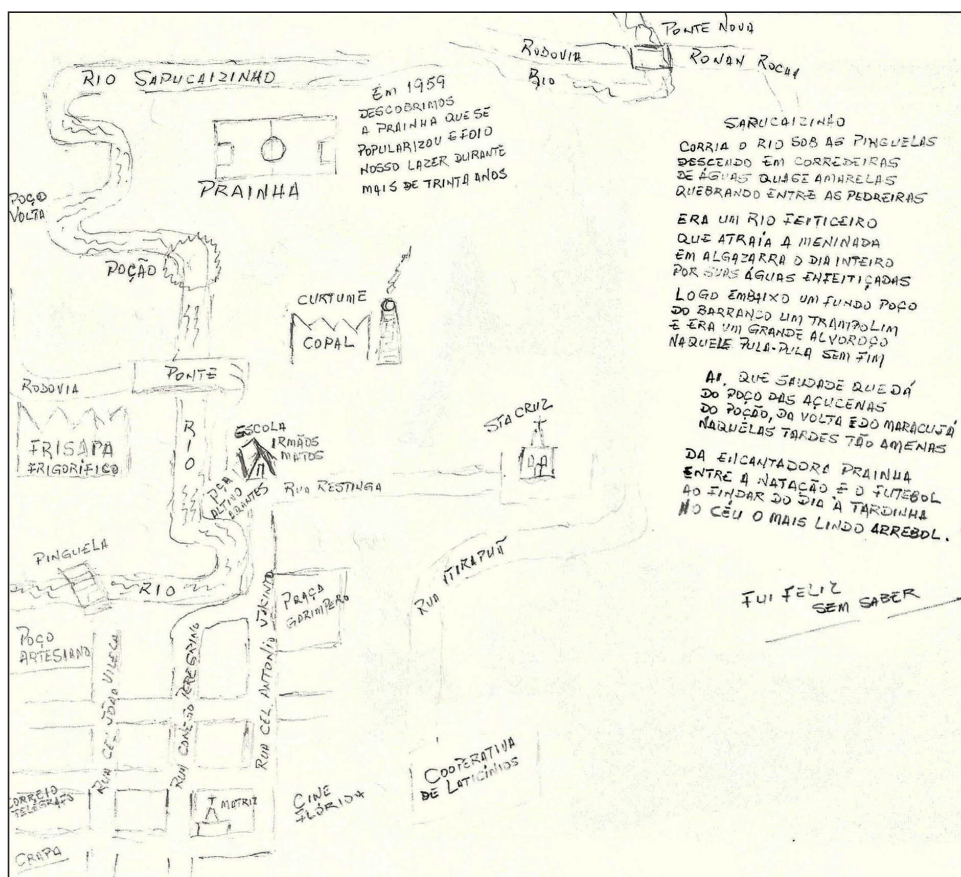 PONTE NOVA
RODOVIA
RONAN ROCHA
RIO
RIO SAPUCAIZINHO
EM 1959
DESCOBRIMOS
A PRAINHA QUE SE
POPULARIZOU E FOI O
NOSSO LAZER DURANTE
MAIS DE TRINTA ANOS
PRAINHA
POÇO
VOLTA
POÇÃO
CURTUME
COPAL
RODOVIA
PONTE
FRISAPA
FRIGORÍFICO
RIO
ESCOLA
IRMÃOS
MATOS
PÇA
ALTINO
ARANTES
RUA RESTINGA
STA CRUZ
PINGUELA
RIO
RUA ITIRAPUÃ
PRAÇA
GARIMPERO
POÇO
ARTESIANO
RUA CEL. JOÃO VILELA
RUA CONEGO PEREGRINO
RUA CEL. ANTONIO JACINTO
CORREIO
TELEGRAFO
MATRIZ
CINE
FLÓRIDA
COOPERATIVA
DE LATICÍNIOS
CRAPA
SAPUCAIZINHO
CORRIA O RIO SOB AS PINGUELAS
DESCENDO EM CORREDEIRAS
DE ÁGUAS QUASE AMARELAS
QUEBRANDO ENTRE AS PEDREIRAS
ERA UM RIO FEITICEIRO
QUE ATRAÍA A MENINADA
EM ALGAZARRA O DIA INTEIRO
POR SUAS ÁGUAS ENFEITIÇADAS
LOGO EMBAIXO UM FUNDO POÇO
DO BARRANCO UM TRAMPOLIM
E ERA UM GRANDE ALVOROÇO
NAQUELE PULA-PULA SEM FIM
AI, QUE SAUDADE QUE DÁ
DO POÇO DAS AÇUCENAS
DO POÇÃO, DA VOLTA E DO MARACUJÁ
NAQUELAS TARDES TÃO AMENAS
DA ENCANTADORA PRAINHA
ENTRE A NATAÇÃO E O FUTEBOL
AO FINDAR DO DIA À TARDINHA
NO CÉU O MAIS LINDO ARREBOL.
FUI FELIZ
SEM SABER